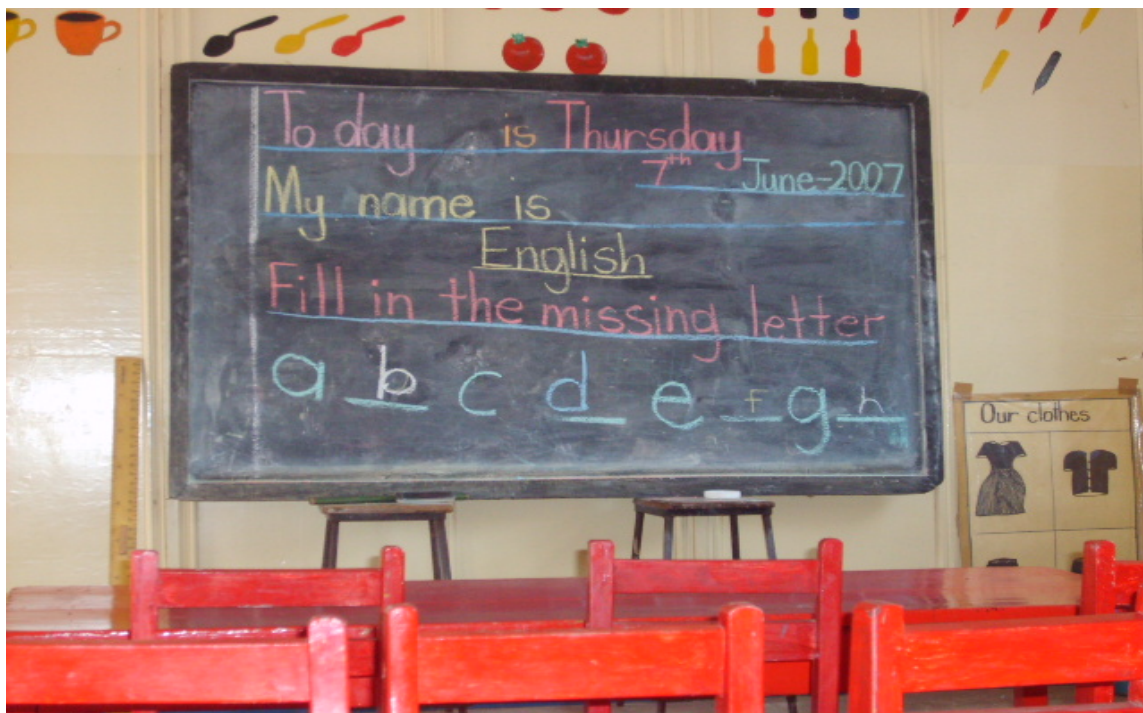 To day is Thursday
7th June-2007
My name is
English
Fill in the missing letter
a b c d e f g h
Our clothes